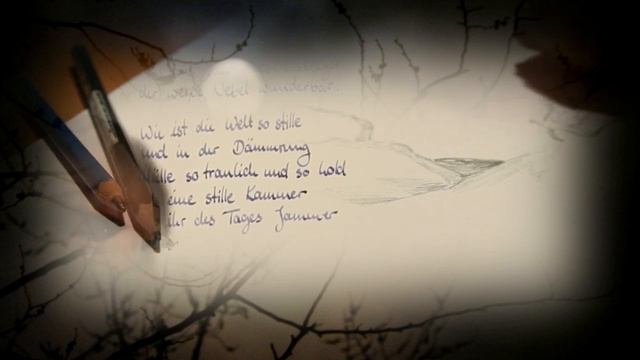 der weiße Nebel wunderbar.
Wie ist die Welt so stille
und in der Dämmrung
Hülle so traulich und so hold
eine stille Kammer
ihr des Tages Jammer